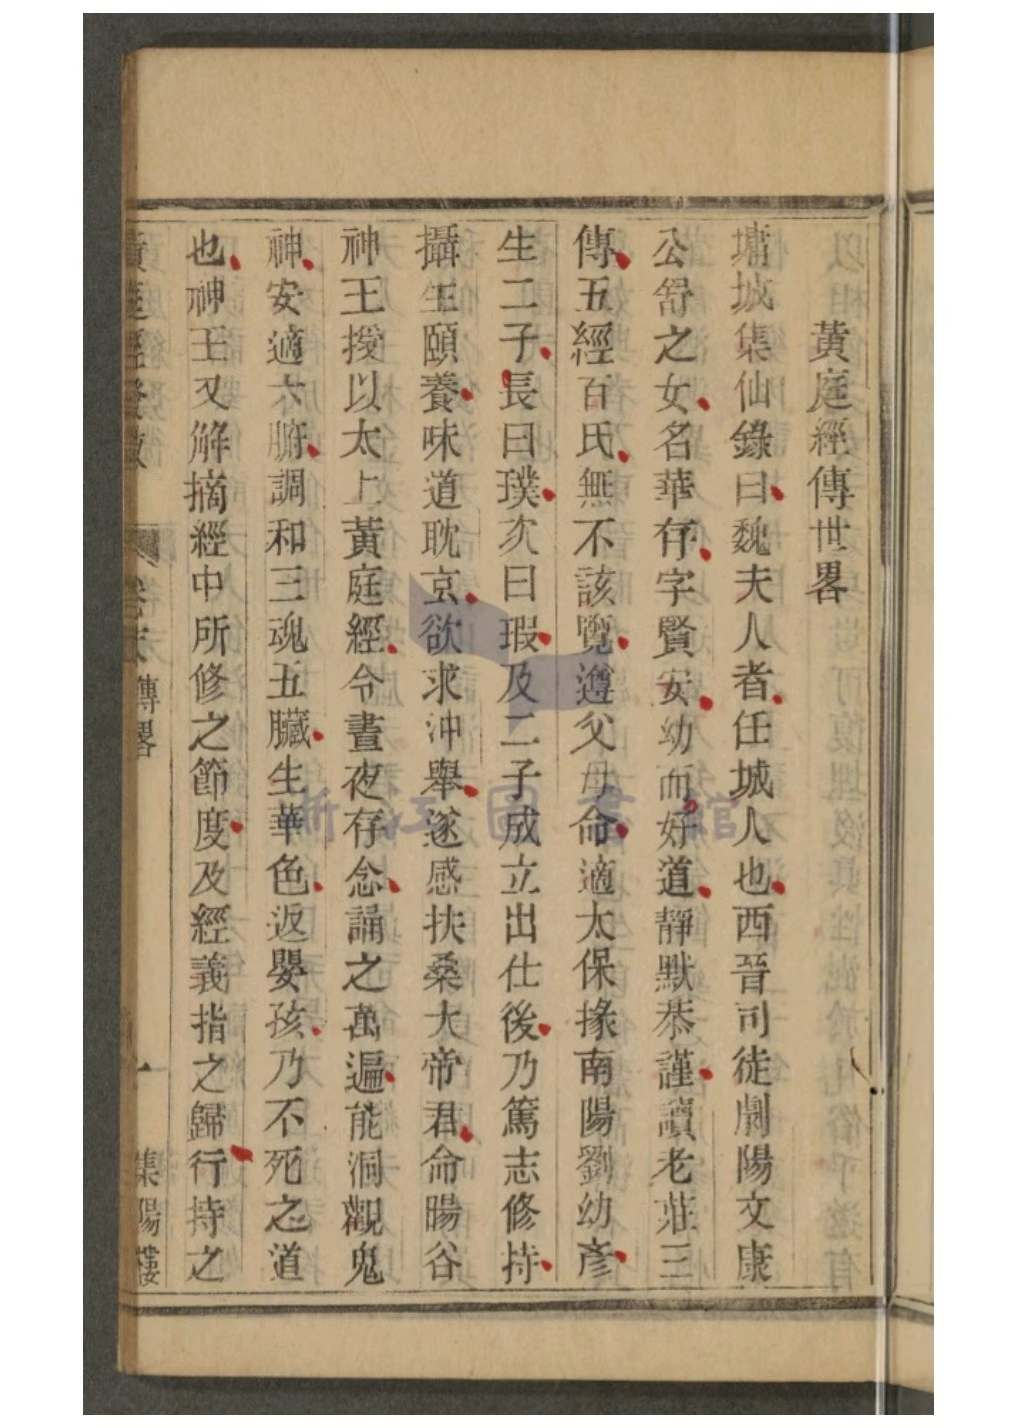 黃庭經傳世畧
墉城集仙錄曰魏夫人者任城人也西晉司徒劇陽文康
公舒之女名華存字賢安幼而好道靜默恭謹讀老莊三
傳五經百氏無不該覽遵父母命適太保掾南陽劉幼彥
生二子長曰璞次曰瑕及二子成立出仕後乃篤志修持
攝生頤養味道耽玄欲求沖舉遂感扶桑大帝君命暘谷
神王授以太上黃庭經令晝夜存念誦之萬遍能洞觀鬼
神安適六腑調和三魂五臟生華色返嬰孩乃不死之道
也神王又解摘經中所修之節度及經義指之歸行持之
黃庭經發微 卷末 傳畧 一 集陽樓
浙江圖書館